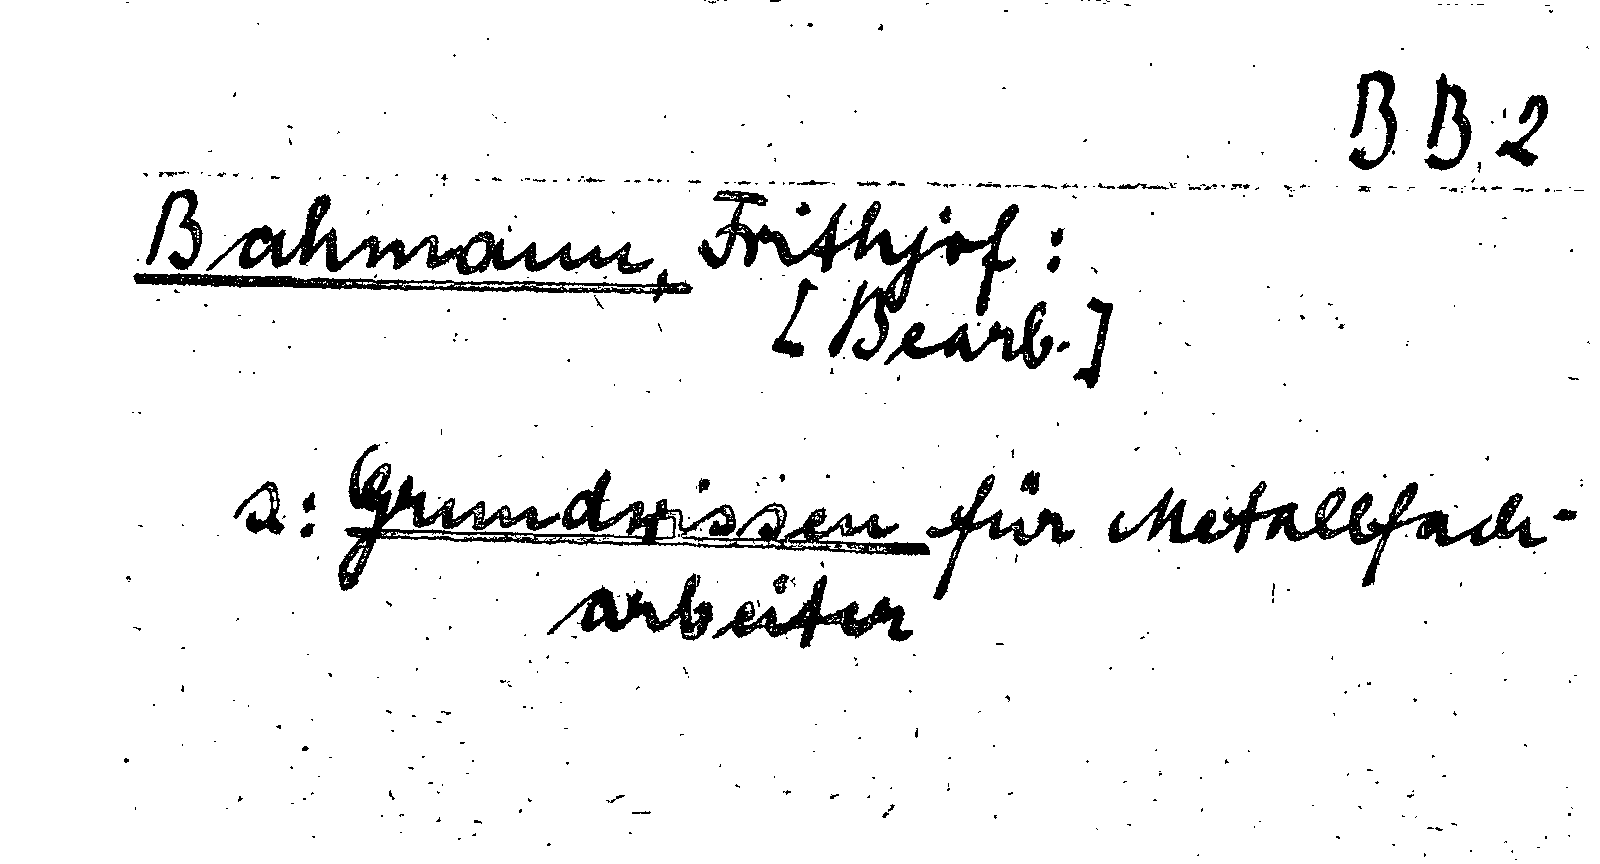 BB 2
Bahmann, Frithjof:
[Bearb.]
s: Grundwissen für Metallfach-
arbeiter